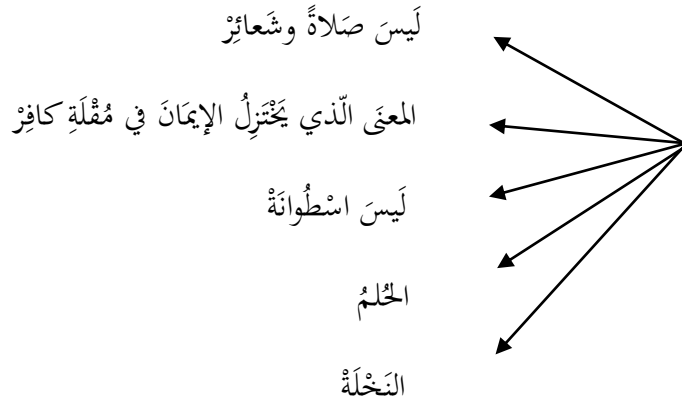 لَيسَ صَلاةً وشَعائِرْ
المعنَى الّذي يَخْتَزِلُ الإيمَانَ في مُقْلَةِ كافِرْ
لَيسَ اسْطُوانَةْ
الحُلمُ
النَخْلَةْ